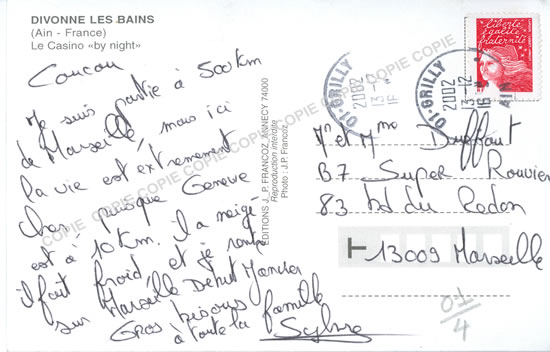 DIVONNE LES BAINS
(Ain - France)
Le Casino «by night»
Coucou
Je suis partie à 500km
de Marseille, mais ici
la vie est extrement
cher puisque Geneve
est à 10km. Il a neigé
il fait froid, et je rentre
sur Marseille Debut Janvier
Gros bisous
à toute la famille
Sylvie
EDITIONS J._ P. FRANCOZ_ ANNECY 74000
Reproduction interdite
Photo : J.P. Francoz
COPIE COPIE COPIE COPIE COPIE COPIE COPIE COPIE
liberté
égalité
fraternité
01-GRILLY
2002
13-12
16
01-GRILLY
2002
13-12
16
AIN
Mr et Mme Duffaut
B7 Super Rouvière
83 bd du Redon
13009 Marseille
01
4